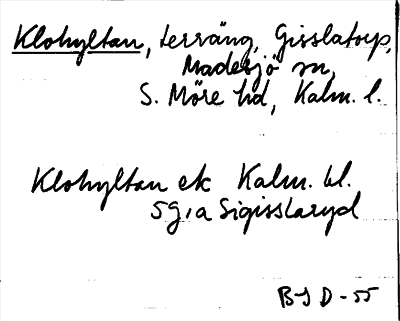 Klohyltan, terräng, Gisslatorp,
Madesjö sn,
S. Möre hd, Kalm. l.
Klohyltan ek Kalm. bl.
5 g, a Sigisslaryd
BJ D-55